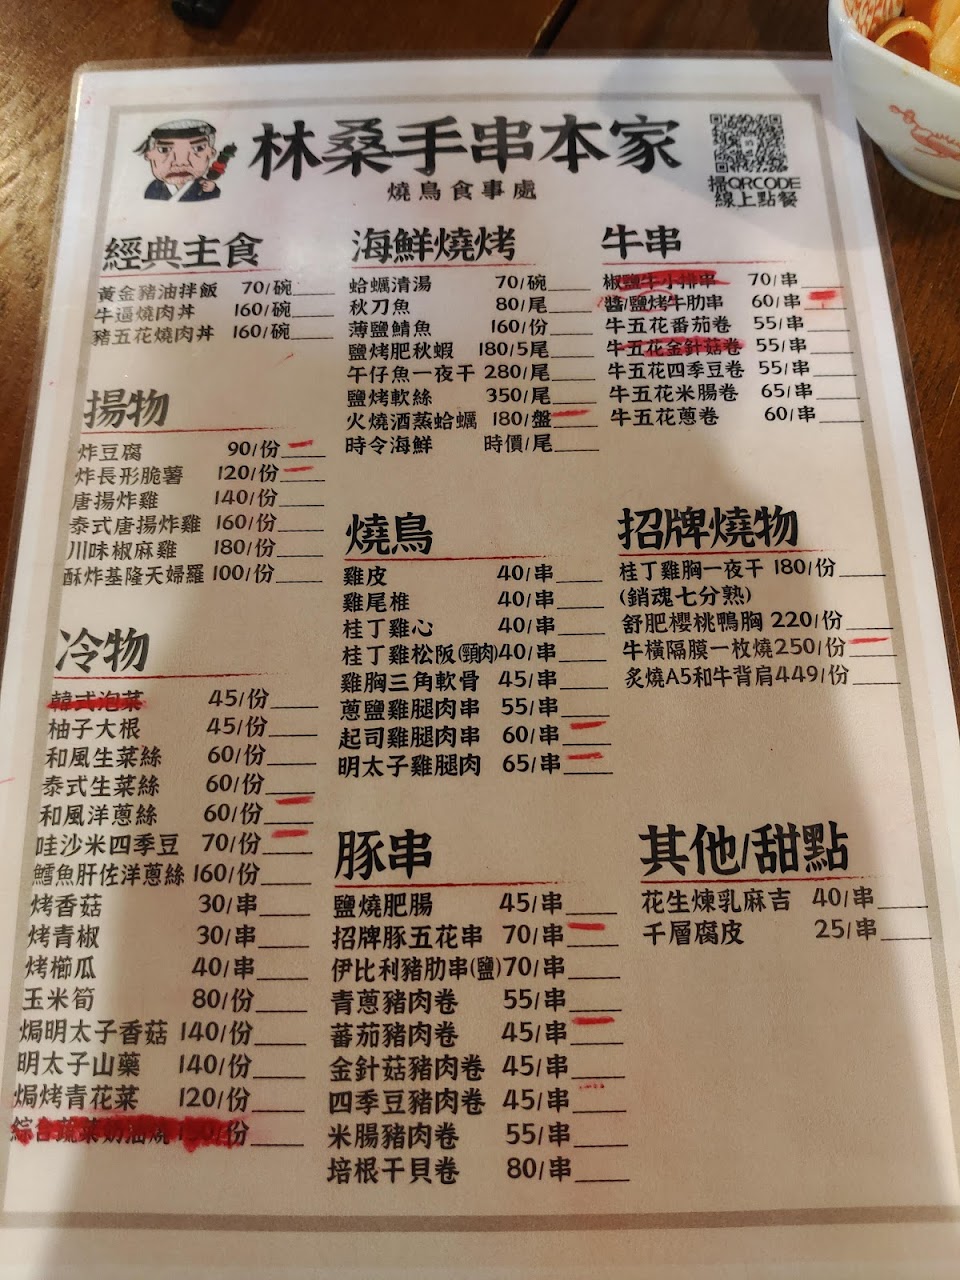 林桑手串本家
燒鳥食事處
掃QRCODE
線上點餐
經典主食
黃金豬油拌飯 70/碗
牛逼燒肉丼 160/碗
豬五花燒肉丼 160/碗
揚物
炸豆腐 90/份
炸長形脆薯 120/份
唐揚炸雞 140/份
泰式唐揚炸雞 160/份
川味椒麻雞 180/份
酥炸基隆天婦羅 100/份
冷物
韓式泡菜 45/份
柚子大根 45/份
和風生菜絲 60/份
泰式生菜絲 60/份
和風洋蔥絲 60/份
哇沙米四季豆 70/份
鱈魚肝佐洋蔥絲 160/份
烤香菇 30/串
烤青椒 30/串
烤櫛瓜 40/串
玉米筍 80/份
焗明太子香菇 140/份
明太子山藥 140/份
焗烤青花菜 120/份
綜合蔬菜奶油燒 /份
海鮮燒烤
蛤蠣清湯 70/碗
秋刀魚 80/尾
薄鹽鯖魚 160/份
鹽烤肥秋蝦 180/5尾
午仔魚一夜干 280/尾
鹽烤軟絲 350/尾
火燒酒蒸蛤蠣 180/盤
時令海鮮 時價/尾
燒鳥
雞皮 40/串
雞尾椎 40/串
桂丁雞心 40/串
桂丁雞松阪(頸肉) 40/串
雞胸三角軟骨 45/串
蔥鹽雞腿肉串 55/串
起司雞腿肉串 60/串
明太子雞腿肉 65/串
豚串
鹽燒肥腸 45/串
招牌豚五花串 70/串
伊比利豬肋串(鹽) 70/串
青蔥豬肉卷 55/串
蕃茄豬肉卷 45/串
金針菇豬肉卷 45/串
四季豆豬肉卷 45/串
米腸豬肉卷 55/串
培根干貝卷 80/串
牛串
椒鹽牛小排串 70/串
醬/鹽烤牛肋串 60/串
牛五花番茄卷 55/串
牛五花金針菇卷 55/串
牛五花四季豆卷 55/串
牛五花米腸卷 65/串
牛五花蔥卷 60/串
招牌燒物
桂丁雞胸一夜干 180/份
(銷魂七分熟)
舒肥櫻桃鴨胸 220/份
牛橫隔膜一枚燒 250/份
炙燒A5和牛背肩 449/份
其他/甜點
花生煉乳麻吉 40/串
千層腐皮 25/串